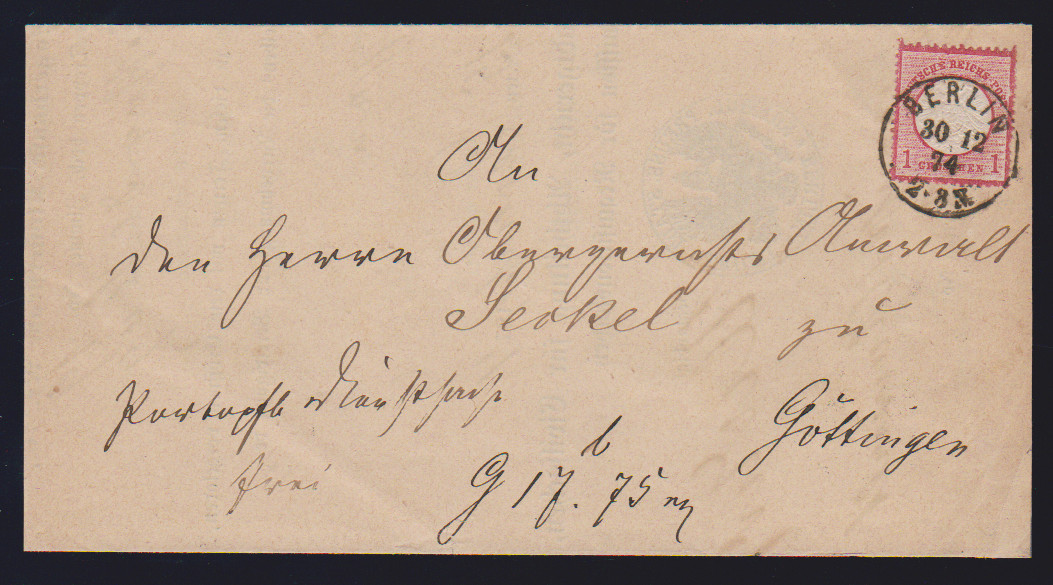 DEUTSCHE REICHS-POST
1 GROSCHEN 1
BERLIN
30 12
74
7-8 N.
An
den Herrn Obergerichts Anwalt
Seckel zu
Göttingen
Portopfl. Dienstsache
frei
G 17. 75